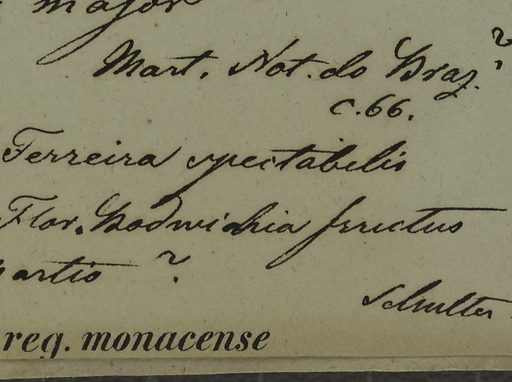 major
Mart. Not. do Braz.?
c. 66.
Ferreira spectabilis
Flor. Bodwichia fructus
artio ?
Schulter
reg. monacense